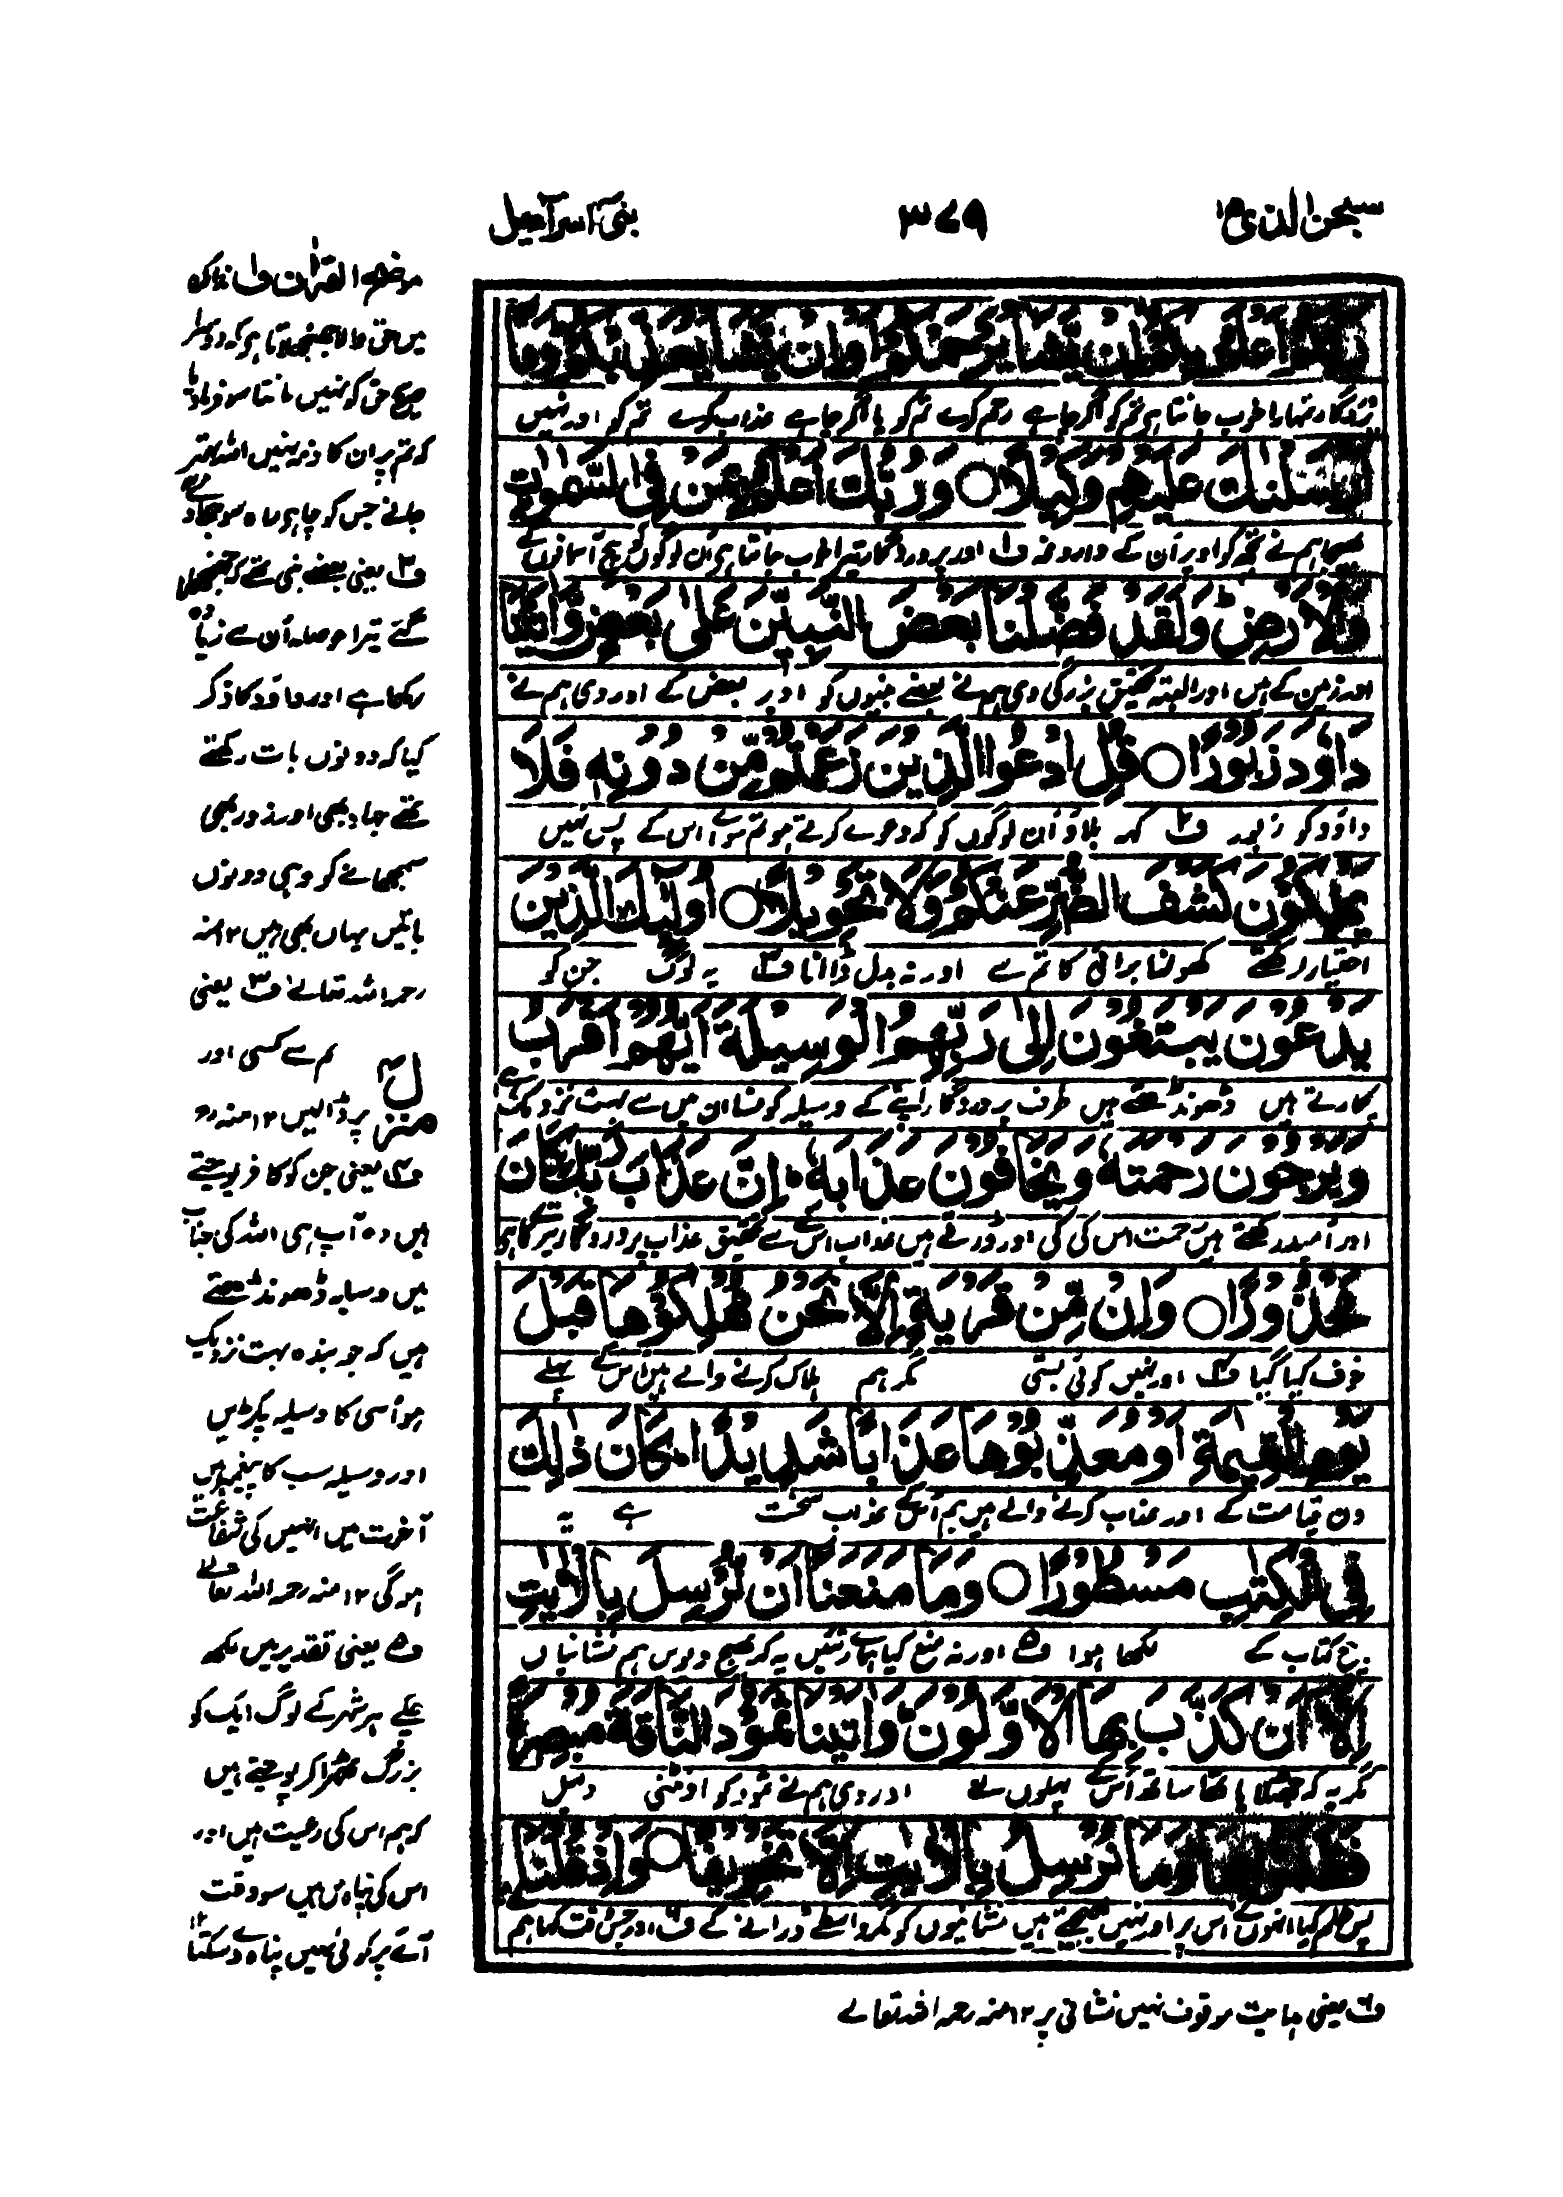 سبحن الذی ١٥
٣٧٩
بنی اسرآءیل
رَبُّكُمْ اَعْلَمُ بِكُمْ اِنْ يَّشَاْ يَرْحَمْكُمْ اَوْ اِنْ يَّشَاْ يُعَذِّبْكُمْ وَمَا
پروردگار تمہارا خوب جانتا ہی تم کو اگر چاہے رحم کرے تم کو یا اگر چاہے عذاب کرے تم کو اور نہیں
اَرْسَلْنٰكَ عَلَيْهِمْ وَكِيْلًا ○ وَرَبُّكَ اَعْلَمُ بِمَنْ فِى السَّمٰوٰتِ
بھیجا ہم نے تجھ کو اوپر اُن کے داروغہ ف١ اور پروردگار تیرا خوب جانتا ہی اُن لوگوں کو بیچ آسمانوں کے
وَالْاَرْضِ وَلَقَدْ فَضَّلْنَا بَعْضَ النَّبِيّٖنَ عَلٰى بَعْضٍ وَّاٰتَيْنَا
اور زمین کے ہیں اور البتہ تحقیق بزرگی دی ہم نے بعضے نبیوں کو اوپر بعض کے اور دی ہم نے
دَاوٗدَ زَبُوْرًا ○ قُلِ ادْعُوا الَّذِيْنَ زَعَمْتُمْ مِّنْ دُوْنِهٖ فَلَا
داؤد کو زبور ف٢ کہہ بلاؤ اُن لوگوں کو کہ دعوے کرتے ہو تم سوائے اس کے پس نہیں
يَمْلِكُوْنَ كَشْفَ الضُّرِّ عَنْكُمْ وَلَا تَحْوِيْلًا ○ اُولٰٓئِكَ الَّذِيْنَ
اختیار رکھتے کھولنا برائی کا تم سے اور نہ بدل ڈالنا ف٣ یہ لوگ جن کو
يَدْعُوْنَ يَبْتَغُوْنَ اِلٰى رَبِّهِمُ الْوَسِيْلَةَ اَيُّهُمْ اَقْرَبُ
پکارتے ہیں ڈھونڈھتے ہیں طرف پروردگار اپنے کے وسیلہ کونسا ان میں سے بہت نزدیک ہے
وَيَرْجُوْنَ رَحْمَتَهٗ وَيَخَافُوْنَ عَذَابَهٗ اِنَّ عَذَابَ رَبِّكَ كَانَ
اور اُمید رکھتے ہیں رحمت اس کی کی اور ڈرتے ہیں عذاب اس کے سے تحقیق عذاب پروردگار تیرے کا ہی
مَحْذُوْرًا ○ وَاِنْ مِّنْ قَرْيَةٍ اِلَّا نَحْنُ مُهْلِكُوْهَا قَبْلَ
خوف کیا گیا ف٤ اور نہیں کوئی بستی مگر ہم ہلاک کرنے والے ہیں اس کے پہلے
يَوْمِ الْقِيٰمَةِ اَوْ مُعَذِّبُوْهَا عَذَابًا شَدِيْدًا كَانَ ذٰلِكَ
دن قیامت کے اور عذاب کرنے والے ہیں ہم اُس کے عذاب سخت ہے یہ
فِى الْكِتٰبِ مَسْطُوْرًا ○ وَمَا مَنَعَنَا اَنْ نُّرْسِلَ بِالْاٰيٰتِ
بیچ کتاب کے لکھا ہوا ف٥ اور نہ منع کیا ہمارے تئیں یہ کہ بھیج دیویں ہم نشانیاں
اِلَّا اَنْ كَذَّبَ بِهَا الْاَوَّلُوْنَ وَاٰتَيْنَا ثَمُوْدَ النَّاقَةَ مُبْصِرَةً
مگر یہ کہ جھٹلایا تھا ساتھ اُس کے پہلوں نے اور دی ہم نے ثمود کو اونٹنی دلیل
فَظَلَمُوْا بِهَا وَمَا نُرْسِلُ بِالْاٰيٰتِ اِلَّا تَخْوِيْفًا ○ وَاِذْ قُلْنَا
پس ظلم کیا انہوں نے اُس پر اور نہیں بھیجتے ہیں نشانیوں کو مگر واسطے ڈرانے کے ف٦ اور جس وقت کہا ہم نے
موضح القرآن ف١ مذاکرہ
میں حق والا جھنجھلاتا ہی کہ دوسرا
صریح حق کو نہیں مانتا سو فرمادیا
کہ تم پر ان کا ذمہ نہیں اللہ بہتر
جانے جس کو چاہی راہ سوجھاوے
ف٢ یعنی بعضے نبی تھے کہ جھنجھلا
گئے تیرا حوصلہ اُن سے زیادہ
رکھا ہے اور داؤد کا ذکر
کیا کہ دونوں بات رکھتے
تھے جہاد بھی اور زبور بھی
سمجھانے کو وہی دونوں
باتیں یہاں بھی ہیں ١٢ منہ
رحمہ اللہ تعالےٰ ف٣ یعنی
تم سے کسی اور
پر ڈالیں ١٢ منہ رح
منزل ٤
ف٤ یعنی جن کو کافر پوجتے
ہیں وہ آپ ہی اللہ کی جناب
میں وسیلہ ڈھونڈھتے
ہیں کہ جو بندہ بہت نزدیک
ہو اُسی کا وسیلہ پکڑیں
اور وسیلہ سب کا پیغمبر ہیں
آخرت میں انہیں کی شفاعت
ہو گی ١٢ منہ رحمہ اللہ تعالےٰ
ف٥ یعنی تقدیر میں لکھ
چکے ہر شہر کے لوگ ایک کو
بزرگ ٹھہرا کر پوجتے ہیں
کہ ہم اس کی رعیت ہیں اور
اس کی پناہ میں ہیں سو وقت
آئے پر کوئی نہیں پناہ دے سکتا ١٢
ف٦ یعنی ہدایت موقوف نہیں نشانی پر ١٢ منہ رحمہ اللہ تعالے